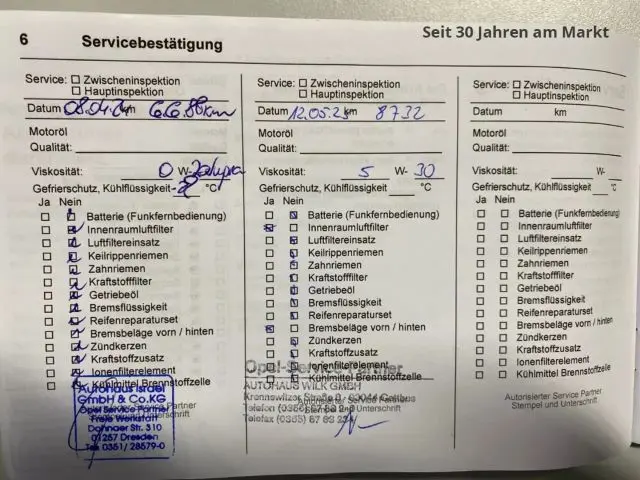 Seit 30 Jahren am Markt
6 Servicebestätigung
Service: Zwischeninspektion
Hauptinspektion
Datum 08.04.24 km 66.88 km
Motoröl
Qualität:
Viskosität: 0 W-
Gefrierschutz, Kühlflüssigkeit °C
Ja Nein
Batterie (Funkfernbedienung)
Innenraumluftfilter
Luftfiltereinsatz
Keilrippenriemen
Zahnriemen
Kraftstofffilter
Getriebeöl
Bremsflüssigkeit
Reifenreparaturset
Bremsbeläge vorn / hinten
Zündkerzen
Kraftstoffzusatz
Ionenfilterelement
Kühlmittel Brennstoffzelle
Autohaus Israel
GmbH & Co.KG
Opel Service Partner
Freie Werkstatt
Dohnaer Str. 310
01257 Dresden
Tel. 0351/ 28579-0
Service: Zwischeninspektion
Hauptinspektion
Datum 12.05.23 km 8732
Motoröl
Qualität:
Viskosität: 5 W- 30
Gefrierschutz, Kühlflüssigkeit °C
Ja Nein
Batterie (Funkfernbedienung)
Innenraumluftfilter
Luftfiltereinsatz
Keilrippenriemen
Zahnriemen
Kraftstofffilter
Getriebeöl
Bremsflüssigkeit
Reifenreparaturset
Bremsbeläge vorn / hinten
Zündkerzen
Kraftstoffzusatz
Ionenfilterelement
Kühlmittel Brennstoffzelle
Opel-Service Partner
AUTOHAUS WILK GMBH
Autorisierter Service Partner
Stempel und Unterschrift
Service: Zwischeninspektion
Hauptinspektion
Datum km
Motoröl
Qualität:
Viskosität: W-
Gefrierschutz, Kühlflüssigkeit °C
Ja Nein
Batterie (Funkfernbedienung)
Innenraumluftfilter
Luftfiltereinsatz
Keilrippenriemen
Zahnriemen
Kraftstofffilter
Getriebeöl
Bremsflüssigkeit
Reifenreparaturset
Bremsbeläge vorn / hinten
Zündkerzen
Kraftstoffzusatz
Ionenfilterelement
Kühlmittel Brennstoffzelle
Autorisierter Service Partner
Stempel und Unterschrift